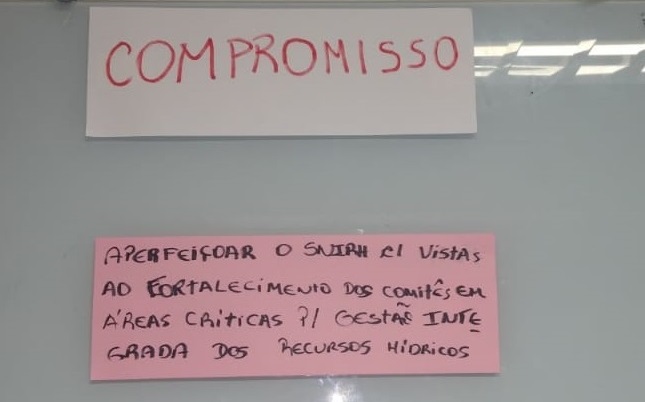 COMPROMISSO
APERFEIÇOAR O SNIRH C/ VISTAS
AO FORTALECIMENTO DOS COMITÊS EM
ÁREAS CRÍTICAS P/ GESTÃO INTE
GRADA DOS RECURSOS HÍDRICOS